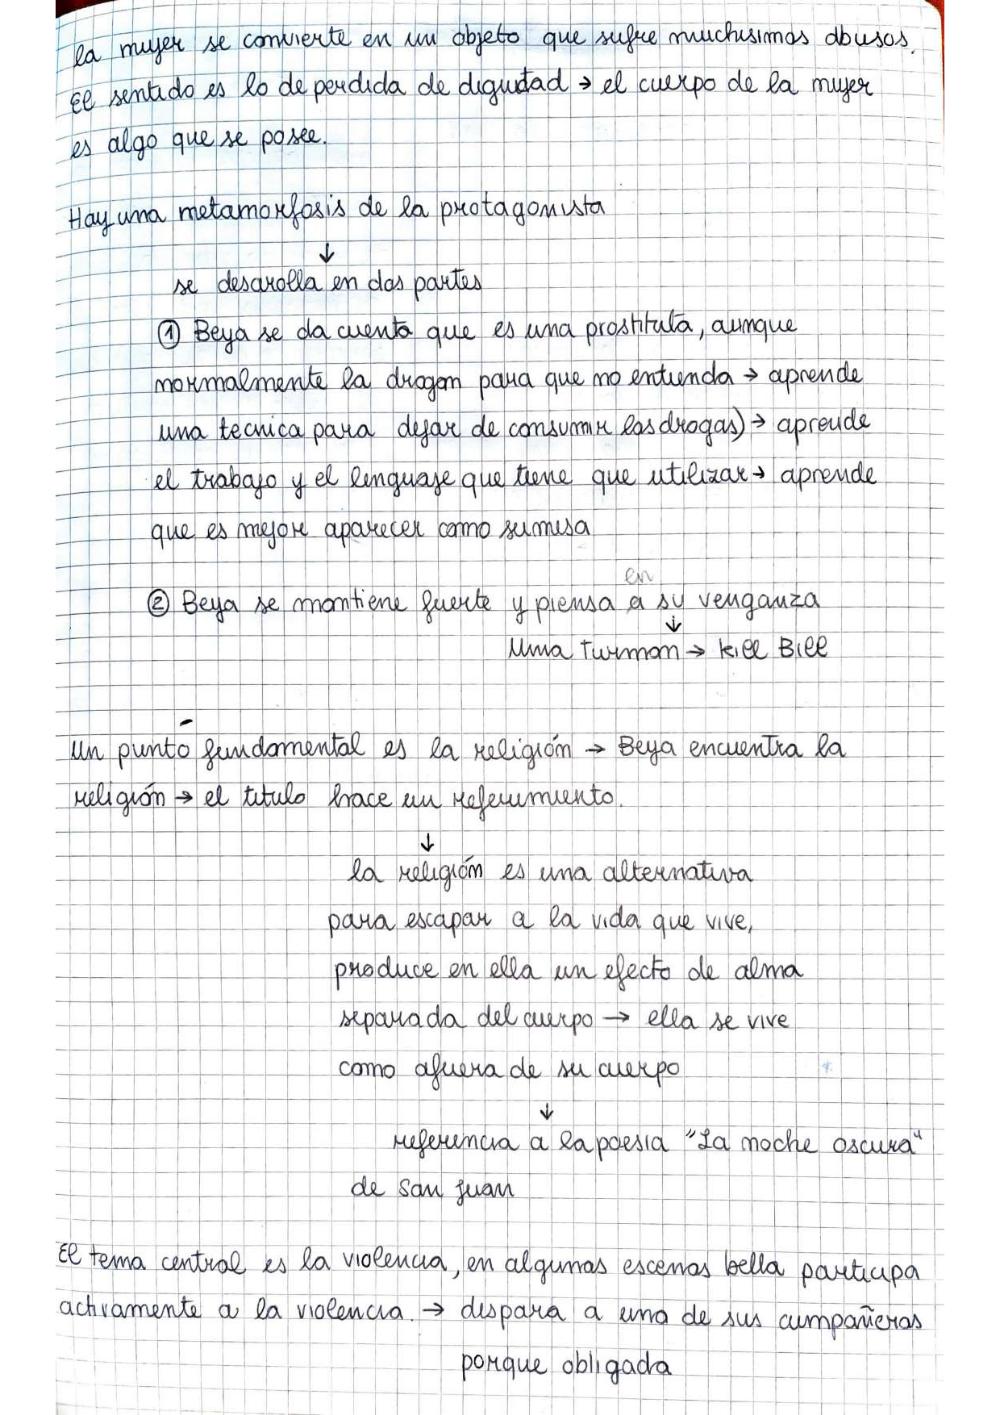 la mujer se convierte en un objeto que sufre muchisimos abusos.
El sentido es lo de perdida de dignidad → el cuerpo de la mujer
es algo que se posee.
Hay una metamorfosis de la protagonista
↓
se desarolla en dos partes
① Beya se da cuenta que es una prostituta, aunque
normalmente la drogan para que no entienda → aprende
una tecnica para dejar de consumir las drogas) → aprende
el trabajo y el lenguaje que tiene que utilizar → aprende
que es mejor aparecer como sumisa
en
② Beya se mantiene fuerte y piensa a su venganza
↓
Uma Turman → kill Bill
Un punto fundamental es la religión → Beya encuentra la
religión → el titulo hace un referimiento.
↓
la religión es una alternativa
para escapar a la vida que vive,
produce en ella un efecto de alma
separada del cuerpo → ella se vive
como afuera de su cuerpo
↓
referencia a la poesia "La noche oscura"
de San Juan
El tema central es la violencia, en algunas escenas bella participa
activamente a la violencia. → dispara a una de sus cumpañeras
porque obligada